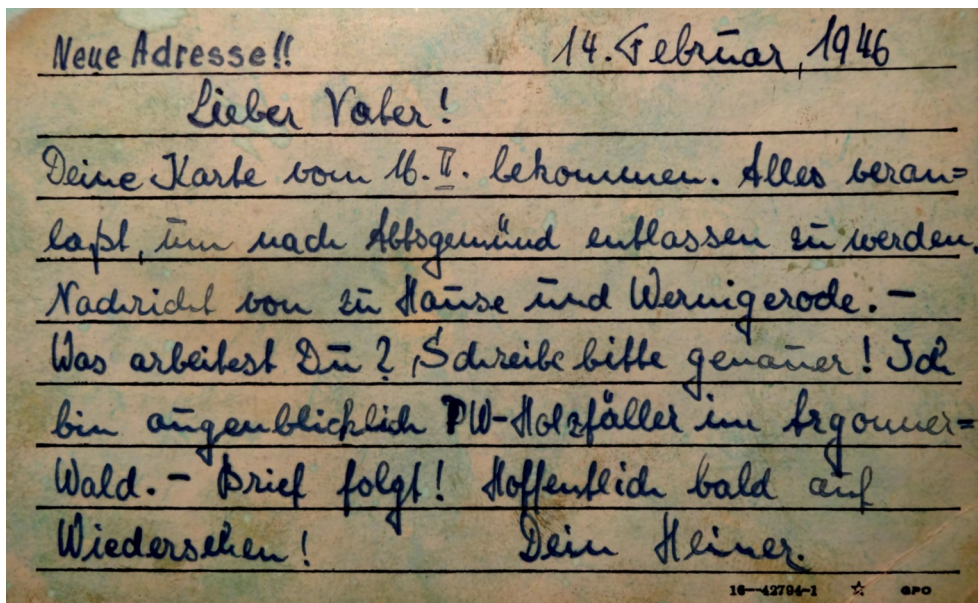 Neue Adresse!! 14. Februar, 1946
Lieber Vater!
Deine Karte vom 16. II. bekommen. Alles veran=
laßt, um nach Abtsgemünd entlassen zu werden.
Nachricht von zu Hause und Wernigerode. –
Was arbeitest Du? Schreibe bitte genauer! Ich
bin augenblicklich PW-Holzfäller im Argonner=
Wald. – Brief folgt! Hoffentlich bald auf
Wiedersehen! Dein Heiner.
16—42794-1 ☆ GPO